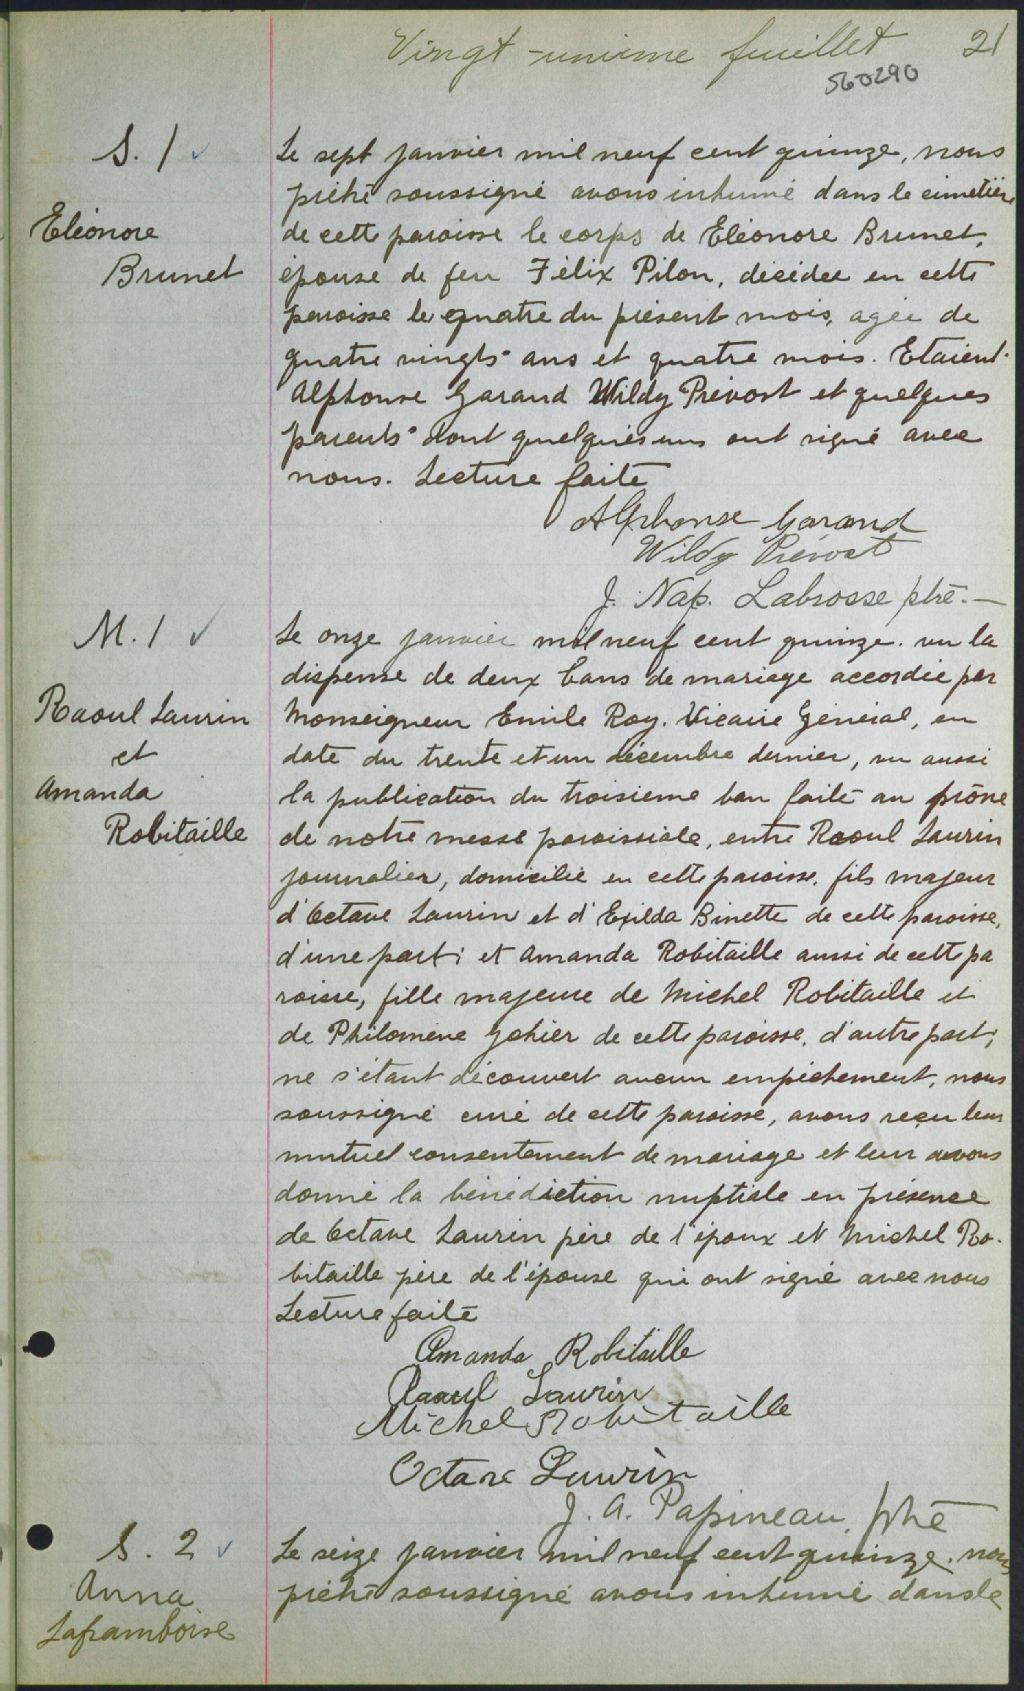 Vingt-unième feuillet 21
560290
S. 1
Eléonore
Brunet
Le sept janvier mil neuf cent quinze, nous
prêtre soussigné avons inhumé dans le cimetière
de cette paroisse le corps de Eléonore Brunet,
épouse de feu Félix Pilon, décédée en cette
paroisse le quatre du présent mois, agée de
quatre vingts ans et quatre mois. Etaient
Alphonse Garand Wildy Prévost et quelques
parents dont quelques uns ont signé avec
nous. Lecture faite
Alphonse Garand
Wildy Prévost
J. Nap. Labrosse ptre.—
M. 1
Raoul Laurin
et
Amanda
Robitaille
Le onze janvier mil neuf cent quinze. vu la
dispense de deux bans de mariage accordée par
Monseigneur Emile Roy. Vicaire Général, en
date du trente et un décembre dernier, vu aussi
la publication du troisième ban faite au prône
de notre messe paroissiale, entre Raoul Laurin
journalier, domicilié en cette paroisse, fils majeur
d'Octave Laurin et d'Exilda Binette de cette paroisse,
d'une part; et Amanda Robitaille aussi de cette pa
roisse, fille majeure de Michel Robitaille et
de Philomène Gohier de cette paroisse, d'autre part;
ne s'étant découvert aucun empêchement, nous
soussigné curé de cette paroisse, avons reçu leur
mutuel consentement de mariage et leur avons
donné la bénédiction nuptiale en présence
de Octave Laurin père de l'époux et Michel Ro-
bitaille père de l'épouse qui ont signé avec nous
Lecture faite
Amanda Robitaille
Raoul Laurin
Michel Robitaille
Octave Laurin
J. A. Papineau, ptre
S. 2
Anna
Laframboise
Le seize janvier mil neuf cent quinze. nous
prêtre soussigné avons inhumé dans le